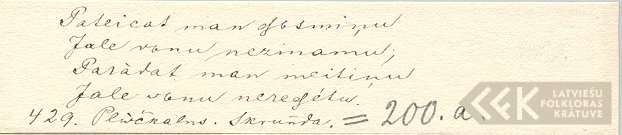 Pateicat man gosmiņu
Jale vonu nezinamu;
Parādat man meitiņu
Jale vonu neredētu.
429. Plūčkalns. Skruñda. = 200. a.
LATVIEŠU
FOLKLORAS
KRĀTUVE